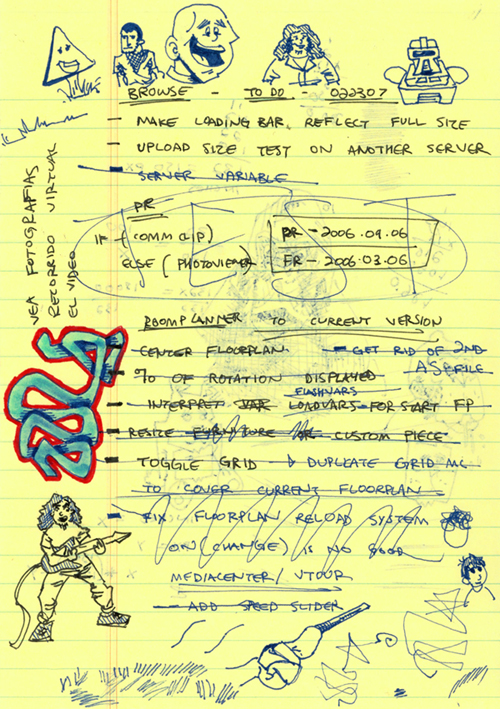 BROWSE - TO DO - 022307
- MAKE LOADING BAR REFLECT FULL SIZE
- UPLOAD SIZE TEST ON ANOTHER SERVER
- SERVER VARIABLE
PR
IF (COMM CLIP)
ELSE (PHOTOVIEWER)
PR - 2006.09.06
FR - 2006.03.06
TEST
VEA FOTOGRAFIAS
RECORRIDO VIRTUAL
EL VIDEO
ROOMPLANNER TO CURRENT VERSION
- CENTER FLOORPLAN - GET RID OF 2ND
ASP FILE
- % OF ROTATION DISPLAYED
FLASHVARS
- INTERPRET VAR LOADVARS FOR START FP
- RESIZE FURNITURE OR CUSTOM PIECE
- TOGGLE GRID DUPLICATE GRID MC
TO COVER CURRENT FLOORPLAN
- FIX FLOORPLAN RELOAD SYSTEM
ON (CHANGE) IS NO GOOD
MEDIACENTER / VTOUR
- ADD SPEED SLIDER